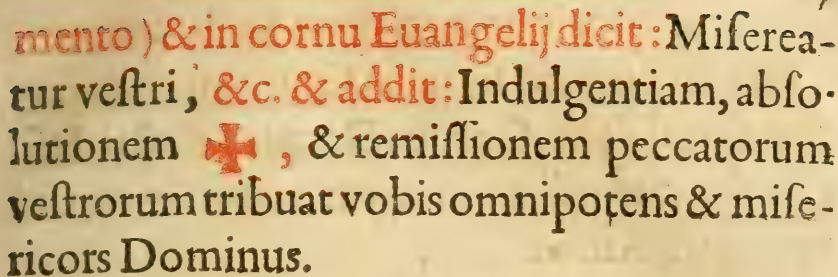 mento) & in cornu Euangelij dicit: Miſerea-
tur veſtri, &c. & addit: Indulgentiam, abſo-
lutionem ✠, & remiſſionem peccatorum
veſtrorum tribuat vobis omnipotens & miſe-
ricors Dominus.